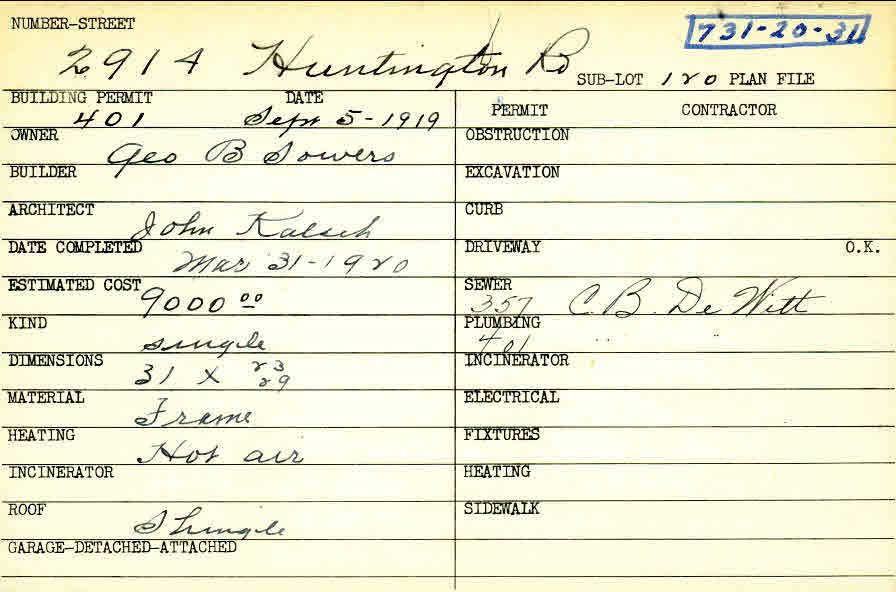 NUMBER-STREET
731-20-31
2914 Huntington Rd SUB-LOT 120 PLAN FILE
BUILDING PERMIT DATE
401 Sept 5-1919
OWNER
Geo B Sowers
BUILDER
ARCHITECT
John Kalsch
DATE COMPLETED
Mar 31-1920
ESTIMATED COST
9000 00
KIND
single
DIMENSIONS
31 X 23
29
MATERIAL
Frame
HEATING
Hot air
INCINERATOR
ROOF
Shingle
GARAGE-DETACHED-ATTACHED
PERMIT CONTRACTOR
OBSTRUCTION
EXCAVATION
CURB
DRIVEWAY O.K.
SEWER
357 C. B. De Witt
PLUMBING
401 " "
INCINERATOR
ELECTRICAL
FIXTURES
HEATING
SIDEWALK